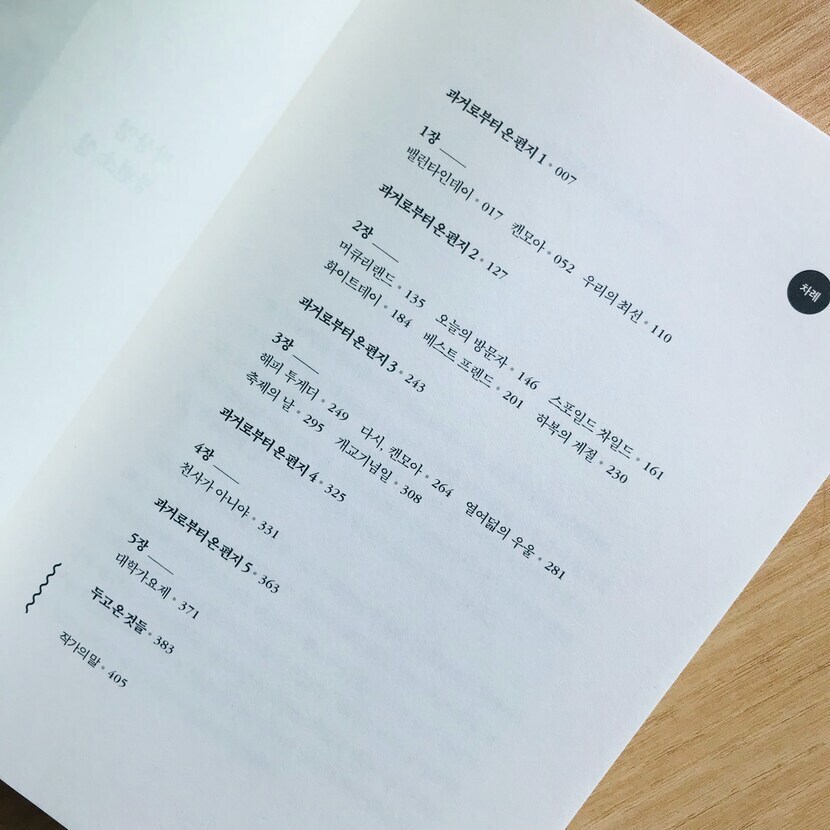 차례
과거로부터 온 편지 1 • 007
1장
밸런타인데이 • 017 캔모아 • 052 우리의 최선 • 110
과거로부터 온 편지 2 • 127
2장
머큐리랜드 • 135 오늘의 방문자 • 146 스포일드 차일드 • 161
화이트데이 • 184 베스트 프렌드 • 201 하복의 계절 • 230
과거로부터 온 편지 3 • 243
3장
해피 투게더 • 249 다시, 캔모아 • 264 열여덟의 우울 • 281
축제의 날 • 295 개교기념일 • 308
과거로부터 온 편지 4 • 325
4장
천사가 아니야 • 331
과거로부터 온 편지 5 • 363
5장
대학가요제 • 371
두고 온 것들 • 383
작가의 말 • 405